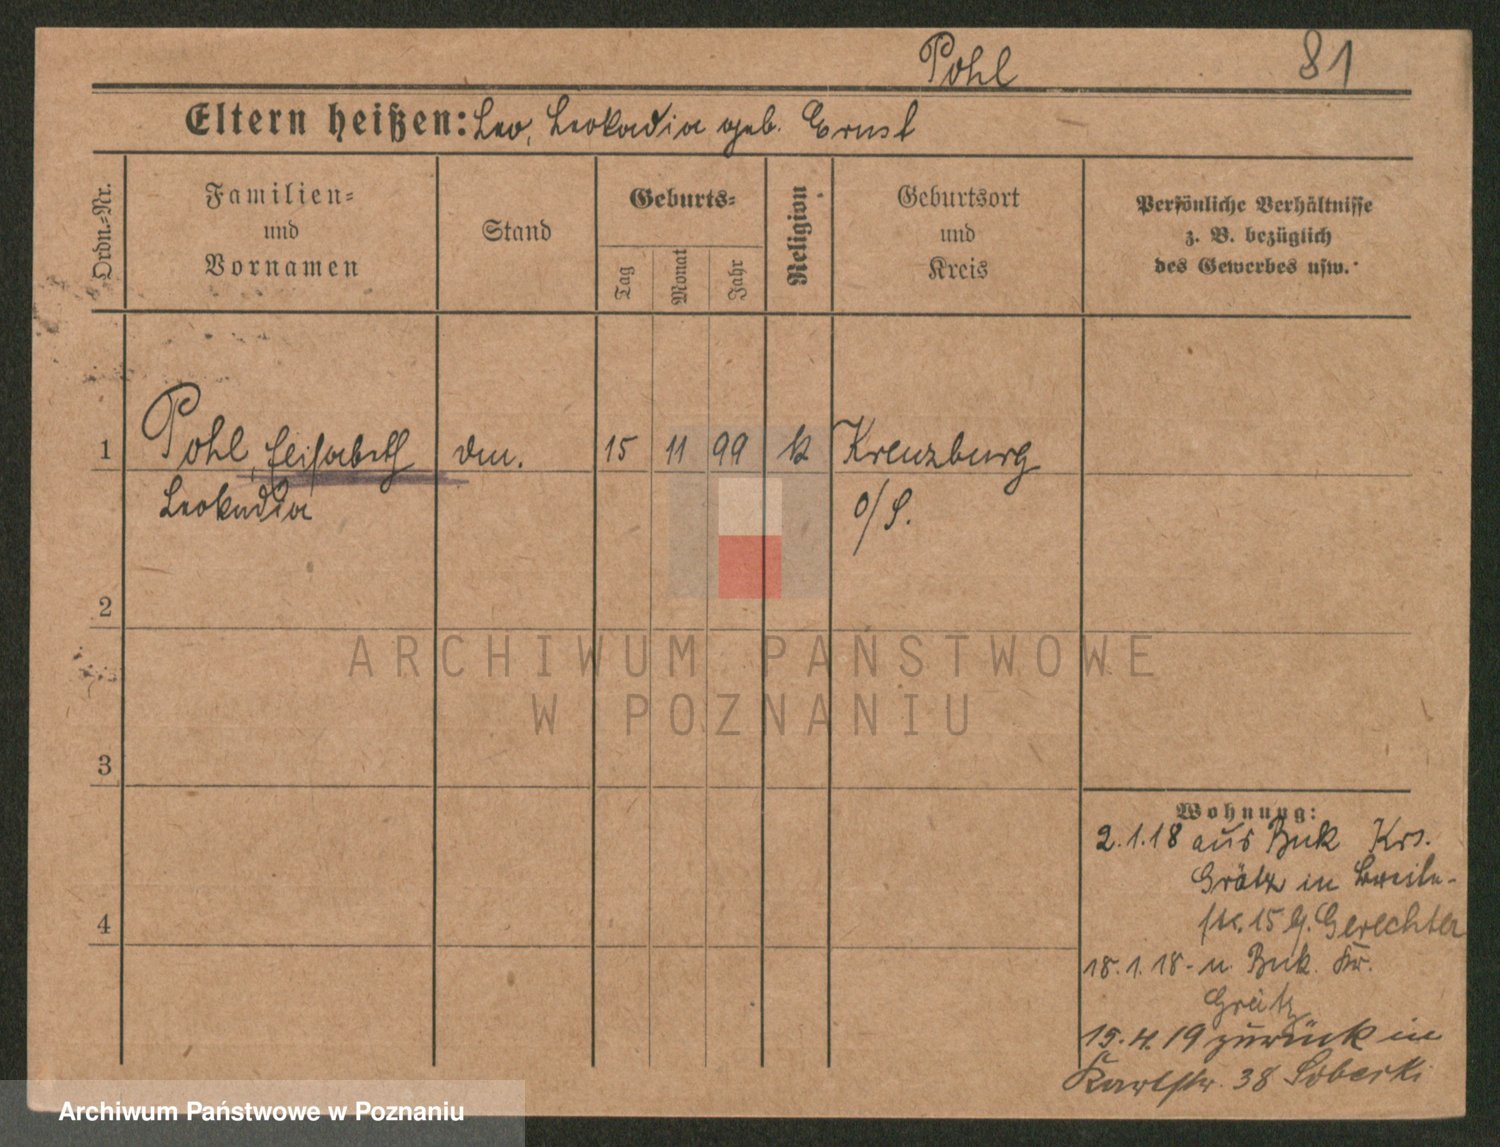 Pohl 81
Eltern heißen: Leo, Leokadia geb. Ernst
Ordn.-Nr.
Familien-
und
Vornamen
Stand
Geburts-
Tag
Monat
Jahr
Religion
Geburtsort
und
Kreis
Persönliche Verhältnisse
z. B. bezüglich
des Gewerbes usw.
1 Pohl, Elisabeth 15 11 99 k Kreuzburg
Leokadia o/S.
2
3
4
Wohnung:
2.1.18 aus Buk Krs.
Grätz in Breite-
str. 15 Gerechter
18.1.18 - n. Buk. Kr.
Grätz
15.4.19 zurück in
Karlstr. 38 Soberski
ARCHIWUM PAŃSTWOWE
W POZNANIU
Archiwum Państwowe w Poznaniu